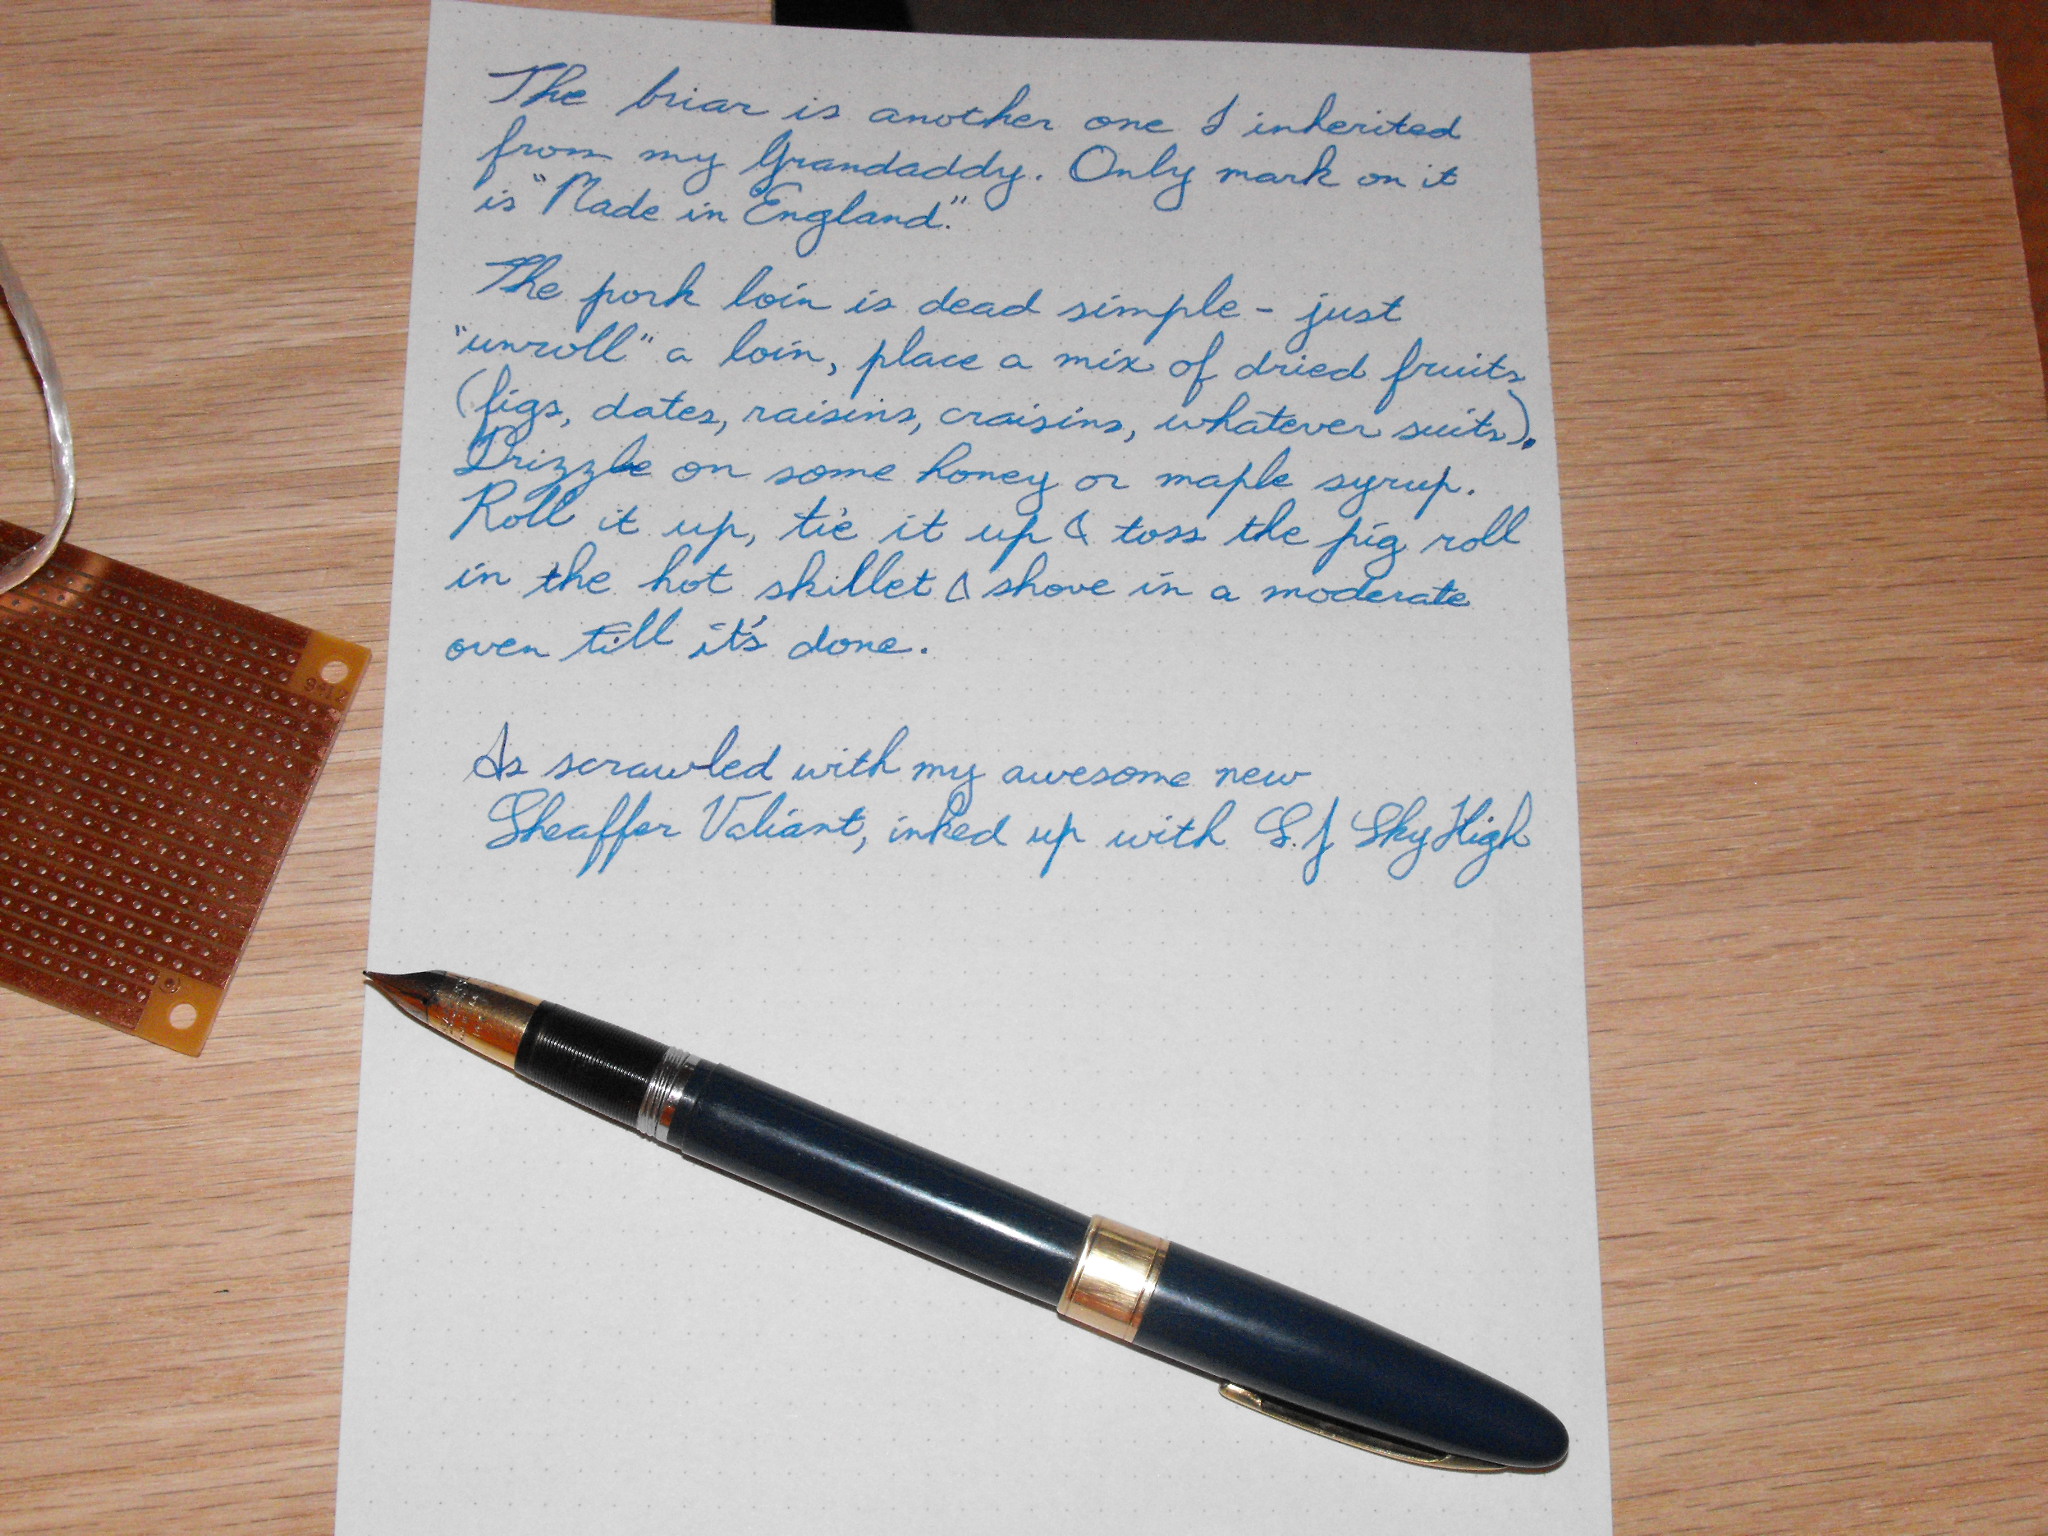 The briar is another one I inherited
from my Grandaddy. Only mark on it
is "Made in England."
The pork loin is dead simple - just
"unroll" a loin, place a mix of dried fruits
(figs, dates, raisins, craisins, whatever suits).
Drizzle on some honey or maple syrup.
Roll it up, tie it up & toss the pig roll
in the hot skillet & shove in a moderate
oven till it's done.
As scrawled with my awesome new
Sheaffer Valiant, inked up with S.J Sky High